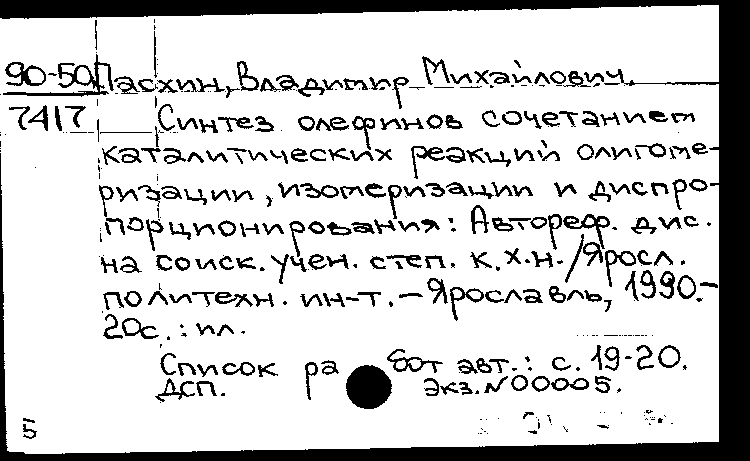 90-50 Пасхин, Владимир Михайлович.
7417 Синтез олефинов сочетанием
каталитических реакций олигоме-
ризации, изомеризации и диспро-
порционирования: Автореф. дис.
на соиск. учен. степ. к.х.н./Яросл.
политехн. ин-т. – Ярославль, 1990.-
20с.: ил.
Список работ авт.: с. 19-20.
ДСП. Экз.N00005.
5